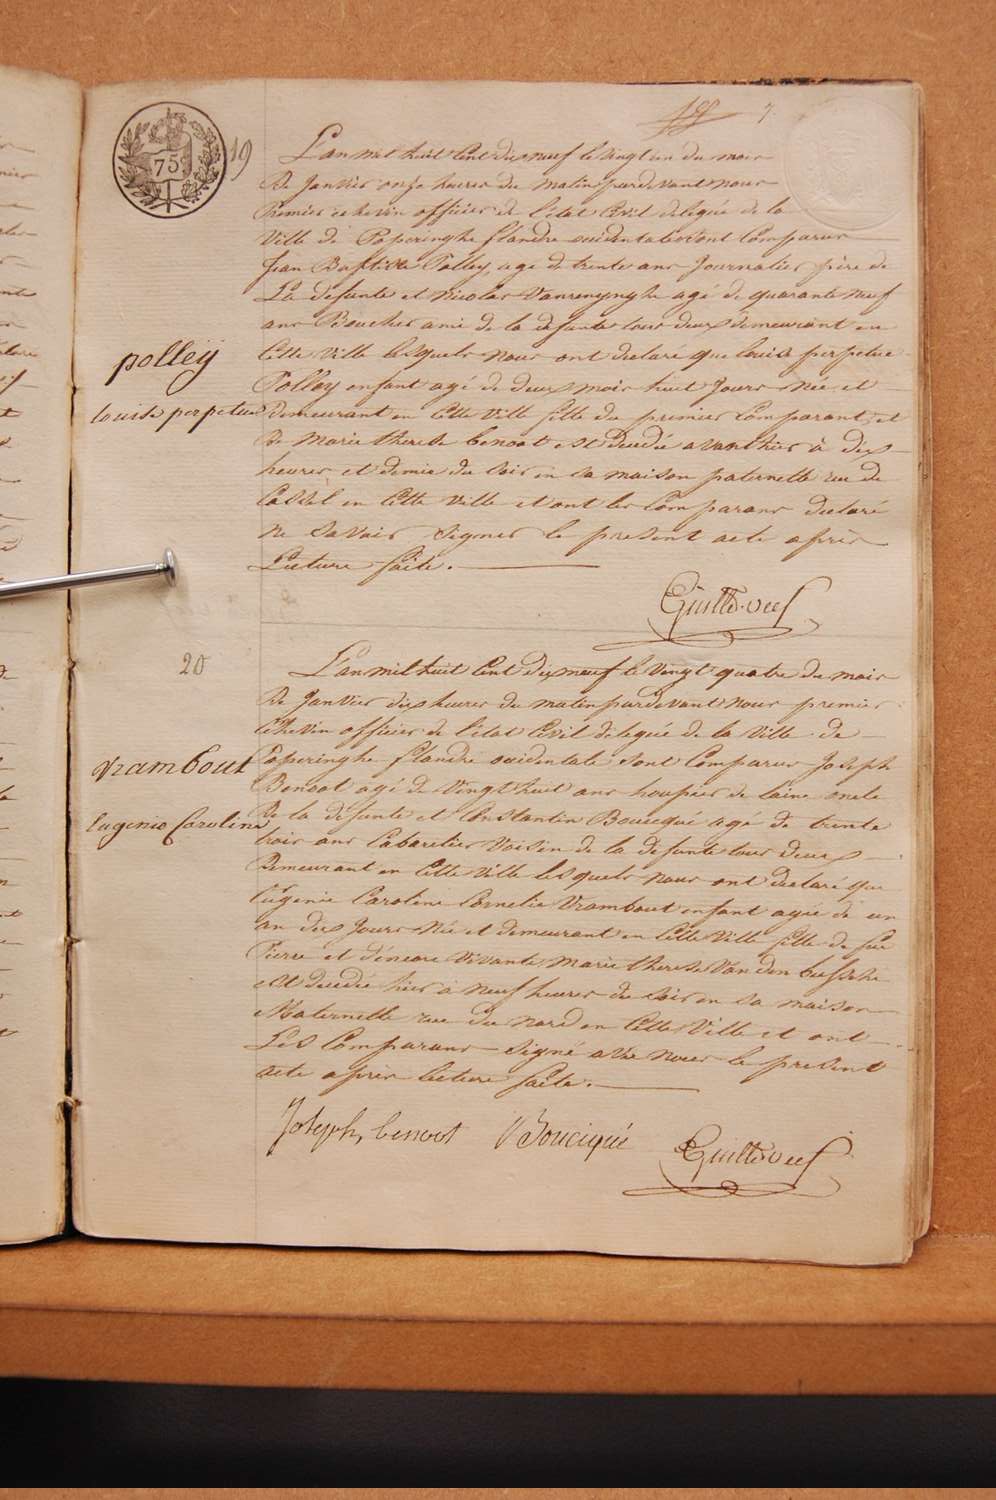 7
75
19
L'an mil huit Cent dix neuf le vingt un du mois
De Janvier onze heures du matin pardevant nous
Premier echevin officier de l'état Civil delegué de la
Ville de Poperinghe flandre occidentale sont Comparus
Jean Baptiste Polley, agé de trente ans Journalier père de
La defunte et Nicolas Vanrenynghe agé de quarante neuf
ans Boucher ami de la defunte tous deux demeurant en
Cette Ville lesquels nous ont declaré que louise perpetue
polleÿ
Polley enfant agé de deux mois huit Jours Née et
louise perpetue
demeurant en Cette Ville fille du premier Comparant, et
De Marie therese benoot est decedée avanthier à dix
heures et demie du soir en sa maison paternelle rue de
Cassel en Cette Ville et ont les Comparans declaré
Ne Savoir Signer le present acte après
Lecture faite.
20
L'an mil huit Cent dix neuf le Vingt quatre du mois
De Janvier dix heures du matin pardevant nous premier
Echevin officier de l'état Civil delegué de la Ville de
Vrambout
Poperinghe flandre occidentale Sont Comparus Joseph
Benoot agé de Vingt huit ans houpier de laine oncle
Eugenie Caroline
De la defunte et Constantin Boucqué agé de trente
trois ans Cabaretier Voisin de la defunte tous deux
Demeurant en Cette Ville lesquels nous ont declaré que
Eugénie Caroline Cornelie Vrambout enfant agée de un
an dix Jours Née et demeurant en Cette Ville fille de feu
Pierre et d'encore Vivante Marie therese Vanden bussche
est decedée hier à neuf heures du soir en sa maison
Maternelle rue du nord en Cette Ville et ont
Les Comparans Signé avec nous le present
acte après lecture faite.
Joseph benoot